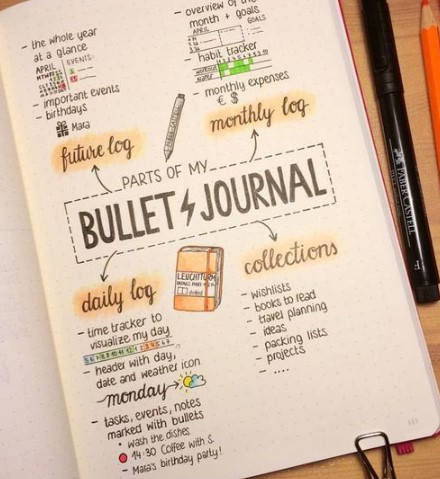 - the whole year
at a glance
APRIL
EVENTS:
- important events
- birthdays
Mara
future log
- overview of the
month + goals
APRIL
GOALS
- habit tracker
- monthly expenses
€ $
monthly log
PARTS OF MY
BULLET JOURNAL
daily log
- time tracker to
visualize my day
- header with day,
date and weather icon
monday
- tasks, events, notes
marked with bullets
• wash the dishes
14:30 Coffee with S.
- Mara's birthday party!
LEUCHTTURM
dotted
collections
- wishlists
- books to read
- travel planning
- ideas
- packing lists
- projects
- ....
FABER-CASTELL